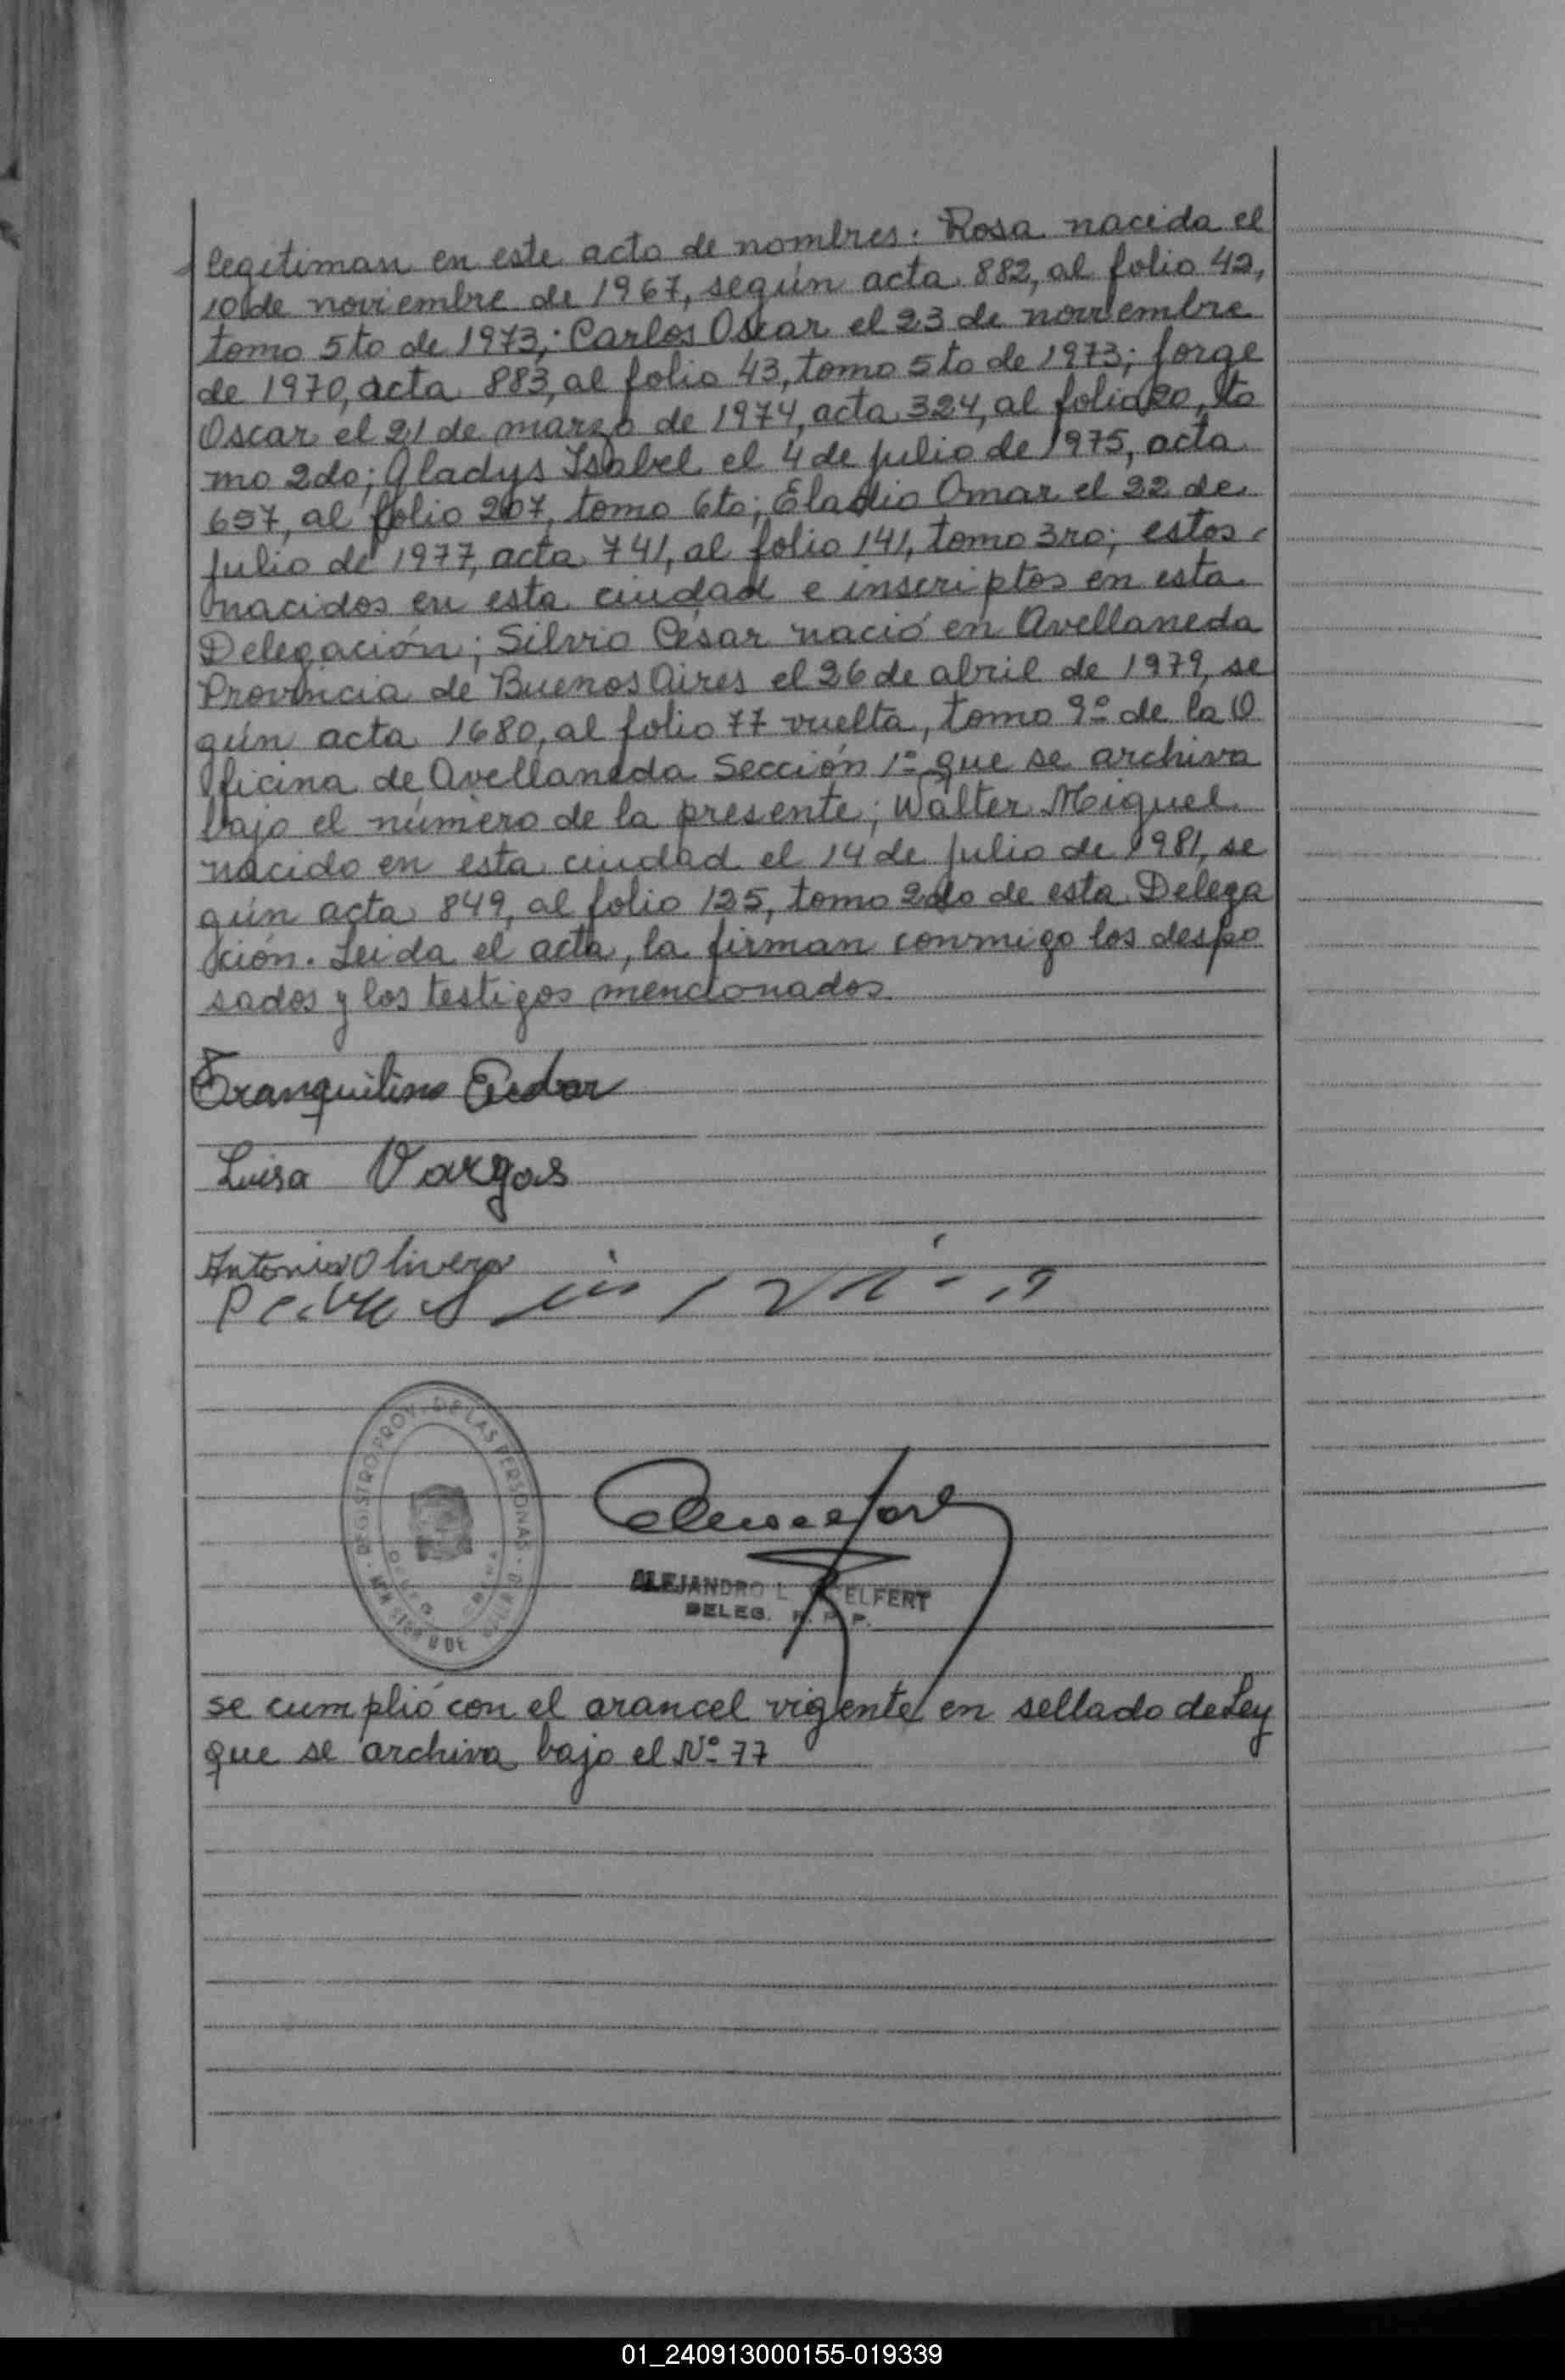 legitiman en este acto de nombres: Rosa nacida el
10 de noviembre de 1967, según acta 882, al folio 42,
tomo 5to de 1973; Carlos Oscar el 23 de noviembre
de 1970, acta 883, al folio 43, tomo 5to de 1973; Jorge
Oscar el 21 de marzo de 1974, acta 324, al folio 20, to
mo 2do; Gladys Isabel el 4 de julio de 1975, acta
657, al folio 207, tomo 6to; Eladio Omar el 22 de
julio de 1977, acta 741, al folio 141, tomo 3ro; estos
nacidos en esta ciudad e inscriptos en esta
Delegación; Silvio César nació en Avellaneda
Provincia de Buenos Aires el 26 de abril de 1979, se
gún acta 1680, al folio 77 vuelta, tomo 9º de la O
ficina de Avellaneda Sección 1º que se archiva
bajo el número de la presente; Walter Miguel
nacido en esta ciudad el 14 de julio de 1981, se
gún acta 849, al folio 125, tomo 2do de esta Delega
ción. Leida el acta, la firman conmigo los despo
sados y los testigos mencionados
Tranquilino
Luisa Vargas
Antonio Olivera
REGISTRO PROV. DE LAS PERSONAS
ALEJANDRO L
DELEG. R. P. P.
se cumplió con el arancel vigente en sellado de Ley
que se archiva bajo el Nº 77
01_240913000155-019339